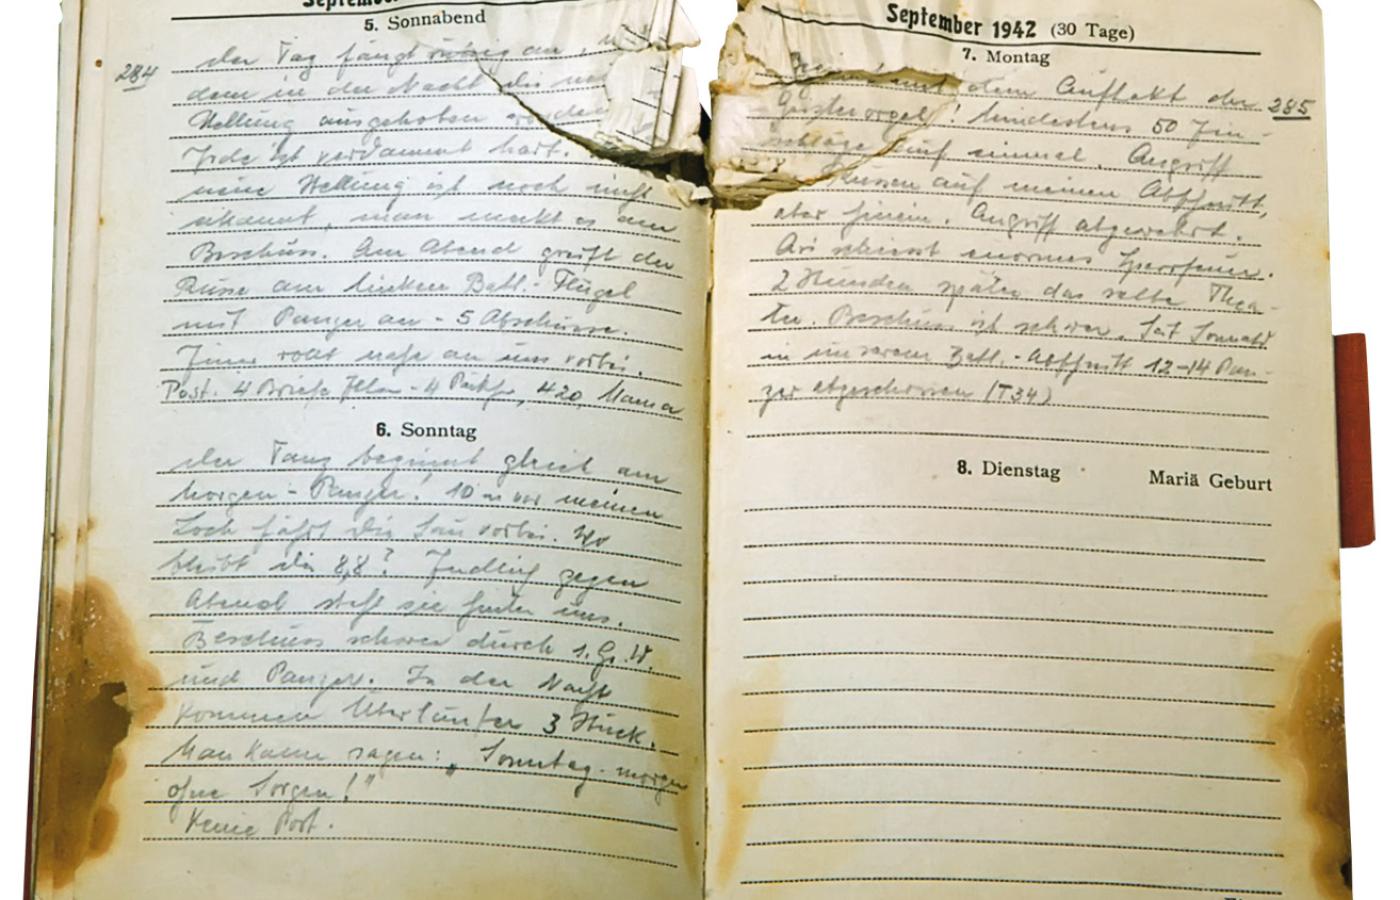 September
5. Sonnabend
284
der Tag fängt ruhig an,
dem in der Nacht die
Stellung ausgehoben worden
Erde ist verdammt hart.
meine Stellung ist noch nicht
erkannt, man merkt es am
Beschuss. Am Abend greift der
Russe am linken Batl.-Flügel
mit Panzer an - 5 Abschüsse.
Einer rollt nahe an uns vorbei.
Post: 4 Briefe - 4 Päckch, 420, Mama
6. Sonntag
der Tanz beginnt gleich am
Morgen - Panzer! 10 m vor meinem
Loch fährt die Sau vorbei. Wo
bleibt die 8,8? Endlich gegen
Abend steht sie hinter uns.
Beschuss schwer durch s. G. W.
und Panzer. In der Nacht
kommen Überläufer 3 Stück.
Man kann sagen: „Sonntag-morgen
ohne Sorgen!"
Keine Post.
September 1942 (30 Tage)
7. Montag
dem Auftakt der 285
Geisterorgel! Mindestens 50 Ein-
schläge auf einmal. Angriff
Russen auf meinen Abschnitt,
aber hinein. Angriff abgewehrt.
Ari schiesst enormes Sperrfeuer.
2 Stunden später das selbe Thea-
ter. Beschuss ist schwer. Seit Sonnabd
in unserem Batl.-Abschnitt 12-14 Pan-
zer abgeschossen (T34)
8. Dienstag Mariä Geburt